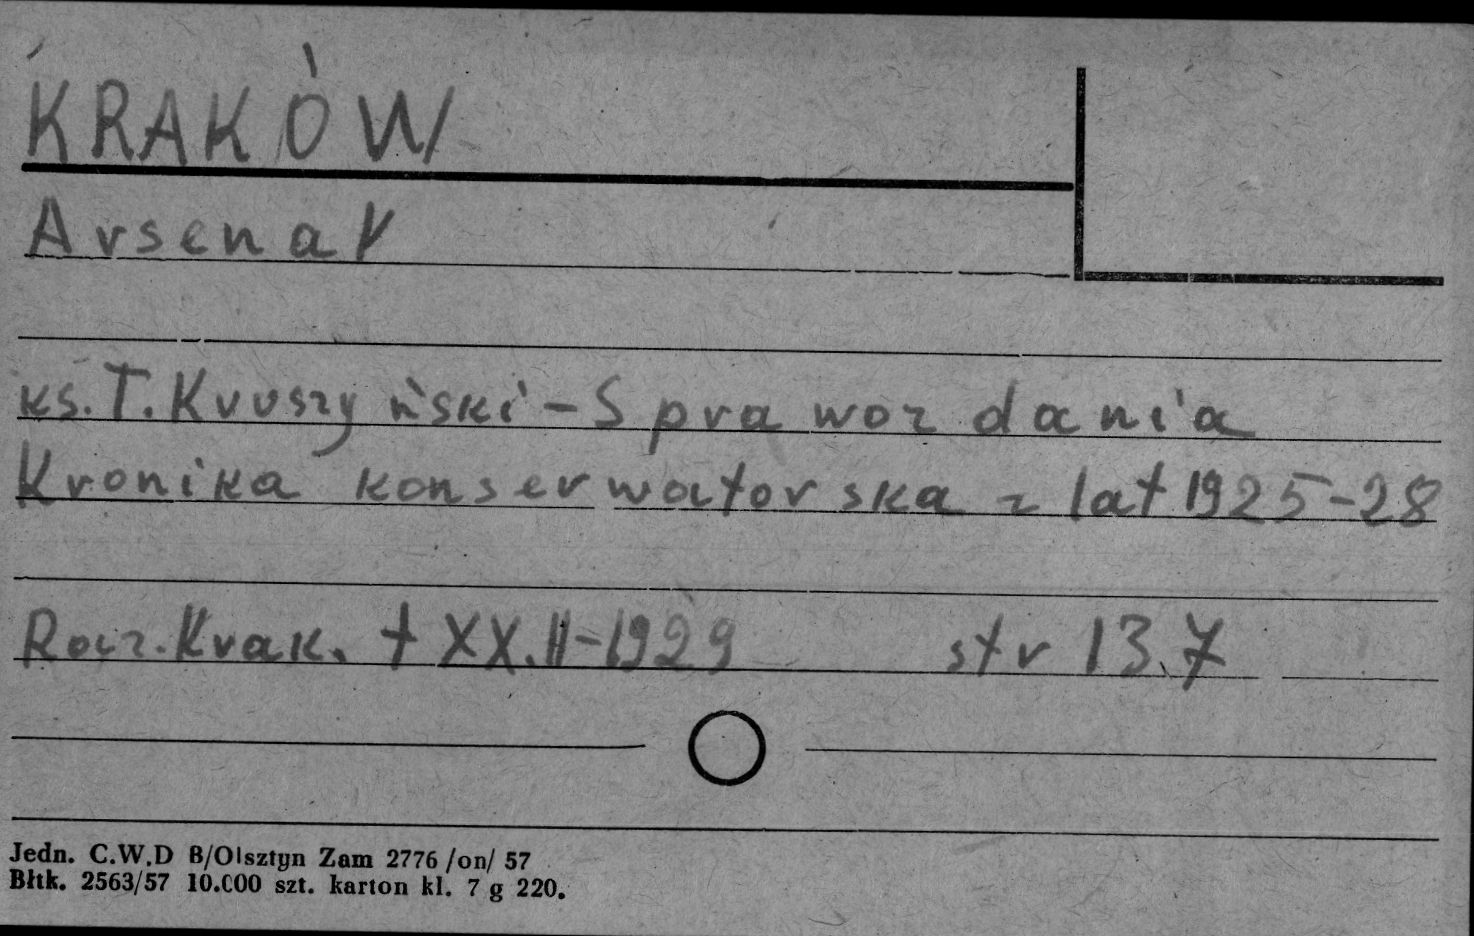 KRAKÓW
Arsenał
ks. T. Kruszyński – Sprawozdania
Kronika konserwatorska z lat 1925-28
Rocz. Krak. t XX.II-1929 str 13.7
Jedn. C.W.D B/Olsztyn Zam 2776 /on/ 57
Błtk. 2563/57 10.000 szt. karton kl. 7 g 220.